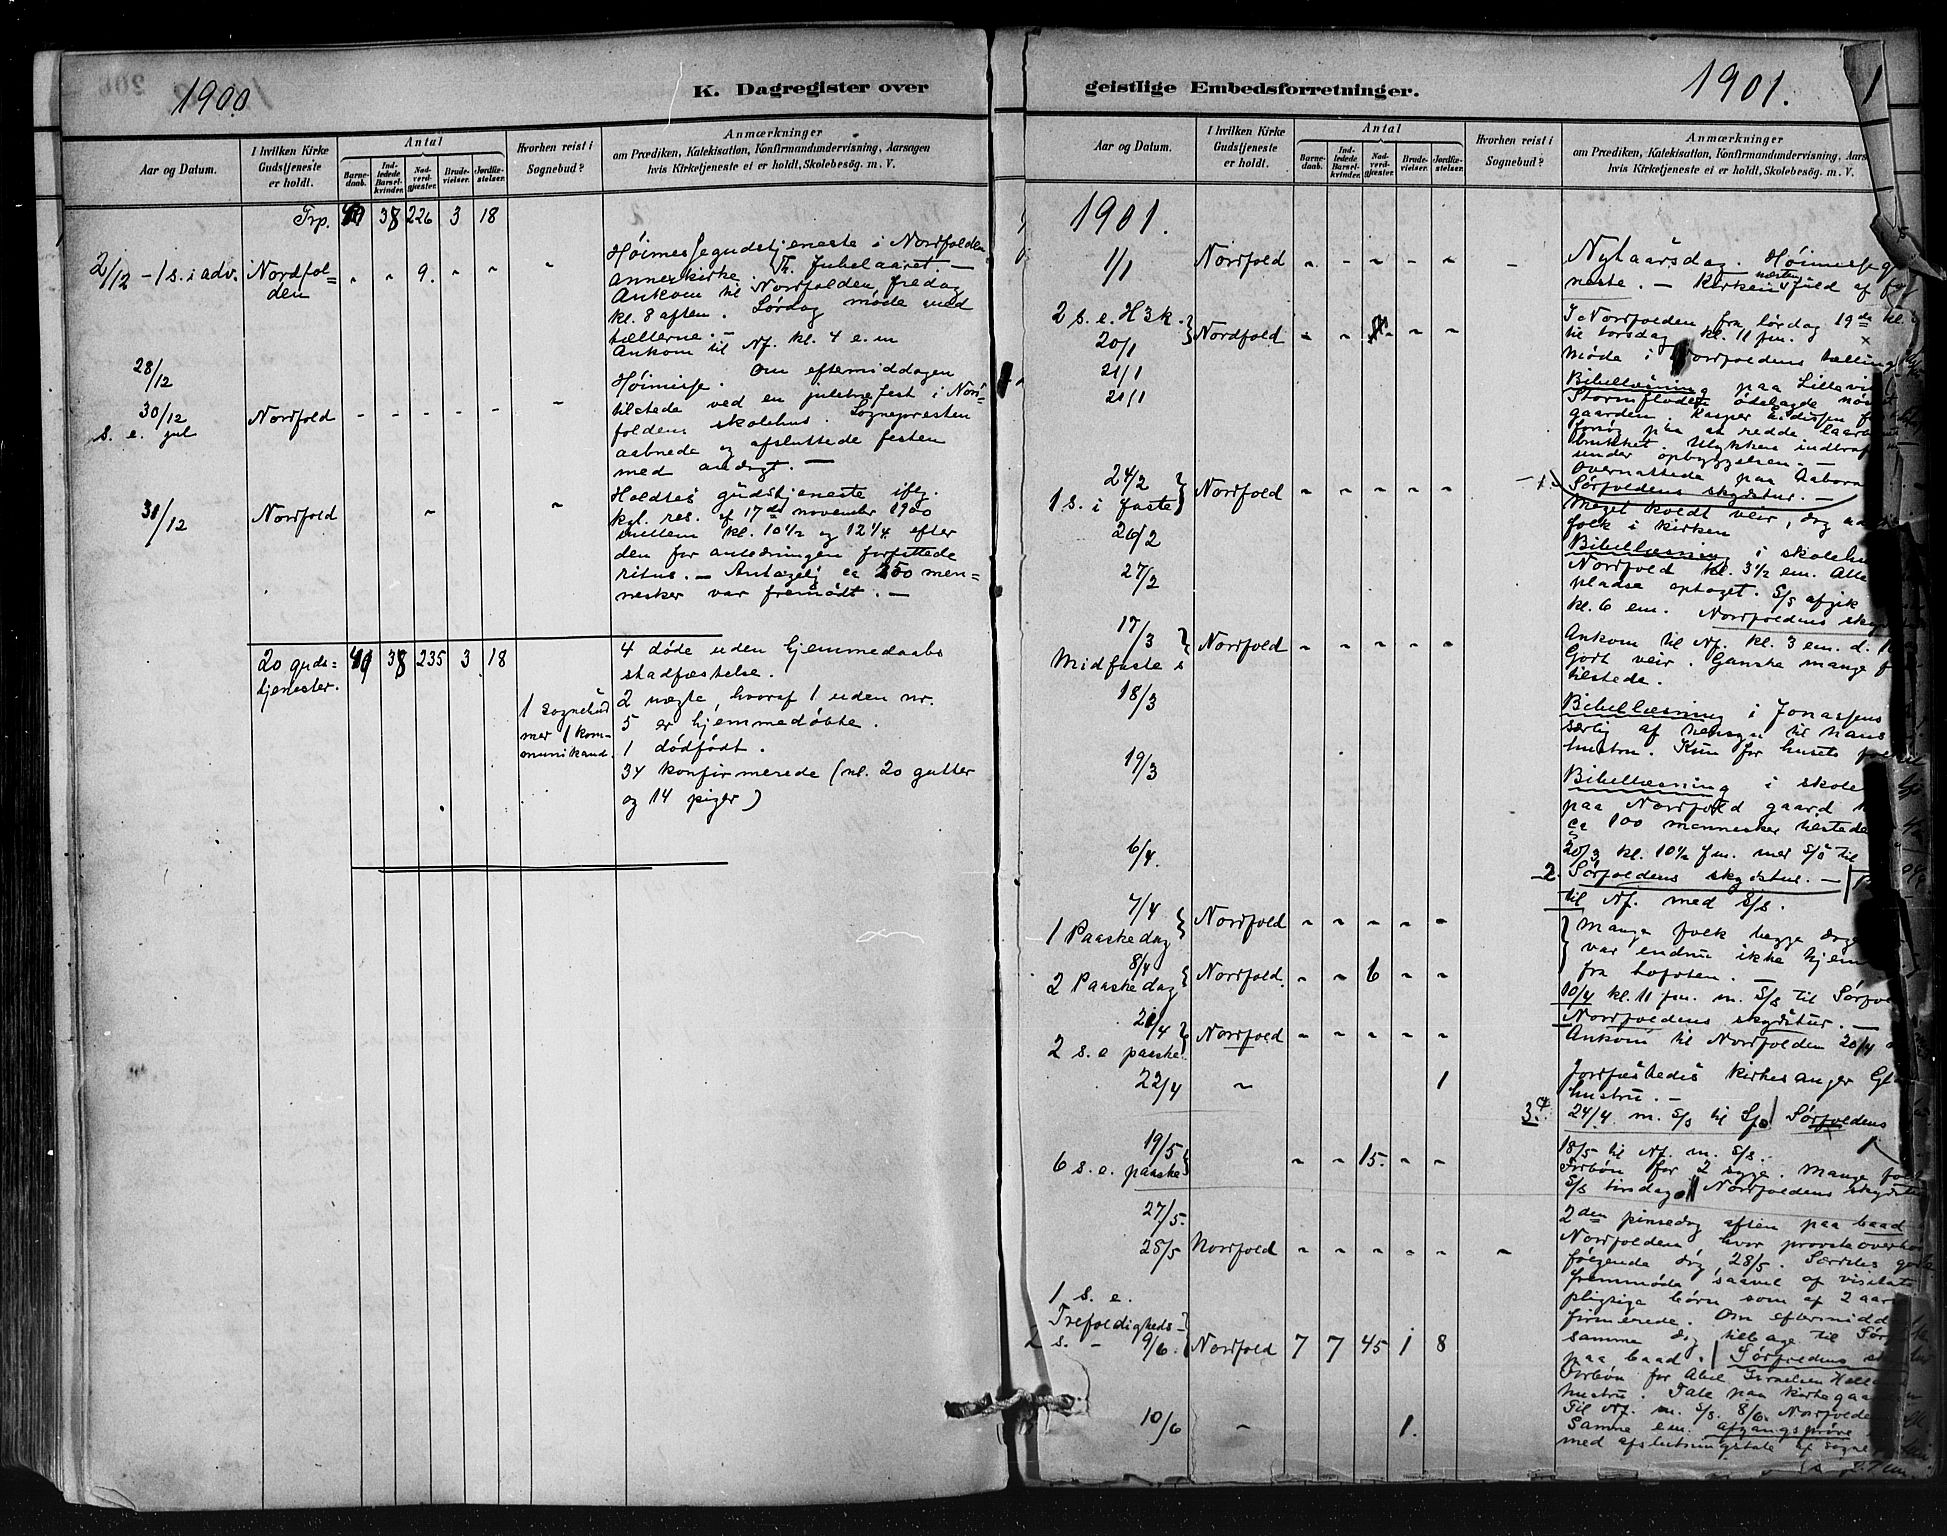 1900
K. Dagregister over
Aar og Datum.
I hvilken Kirke Gudstjeneste er holdt.
Antal
Barnedaab.
Indledede Barselkvinder.
Nadverdgjester.
Brudevielser.
Jordfæstelser.
Hvorhen reist i Sognebud?
Anmærkninger
om Prædiken, Katekisation, Konfirmandundervisning, Aarsagen
hvis Kirketjeneste ei er holdt, Skolebesög. m. V.
Trp. 38 226 3 18
2/12 - 1 s. i adv. Nordfol=
den " " 9. " " "
Høimessegudstjeneste i Nordfolden
Annexkirke. Th. Jubelaaret. —
Ankom til Nordfolden fredag
kl. 8 aften. Lørdag møde med
tællerne. —
28/12
Ankom til Nf. kl. 4 e. m
30/12
s. e. jul Nordfold - - - - - -
Høimesse. Om eftermiddagen
tilstede ved en juletræfest i Nor=
foldens skolehus. Sognepresten
aabnede og afsluttede festen
med andagt. —
31/12 Nordfold " "
Holdtes gudstjeneste iflg.
kgl. res. af 17de november 1900
mellem kl. 10½ og 12¼ efter
den for anledningen forfattede
ritus. — Antagelig ca 250 men=
nesker var fremmødt. —
20 guds=
tjenester. 41 38 235 3 18
1 sognebud
mer 1 kom-
munikand.
4 døde uden hjemmedaabs
stadfæstelse.
2 uægte, hvoraf 1 uden nr.
5 er hjemmedøbte.
1 dødfødt.
34 konfirmerede (nl. 20 gutter
og 14 piger)
geistlige Embedsforretninger.
1901.
1
Aar og Datum.
I hvilken Kirke Gudstjeneste er holdt.
Antal
Barnedaab.
Indledede Barselkvinder.
Nadverdgjester.
Brudevielser.
Jordfæstelser.
Hvorhen reist i Sognebud?
Anmærkninger
om Prædiken, Katekisation, Konfirmandundervisning, Aars
hvis Kirketjeneste ei er holdt, Skolebesög. m. V.
1901.
1/1 Nordfold - - - - - -
Nytaarsdag. Høimesseg
neste. — Kirken næsten fuld af fol
2 s. e. H3k.
20/1 Nordfold - - - -
I Nordfolden fra lørdag 19de kl.
til torsdag kl. 11 fm.
21/1
Møde i Nordfoldens
21/1
Bibellæsning paa
Stormfloden ødelagde
gaarden. Kasper
forsøg paa at redde
brukket. Ulykken indtraf
under opbyggelsen. —
Overnattede paa
-1- Sørfoldens skydstur. —
24/2
1 s. i faste Nordfold - - - - -
Meget koldt veir, dog
folk i kirken
26/2
Bibellæsning i skolehu
27/2
Nordfold kl. 3½ em. Alle
pladse optaget. S/s afgik
kl. 6 em. Nordfoldens sky
17/3
Midfaste s Nordfold - - - - -
Ankom til Nf. kl. 3 em. d.
Godt veir. Ganske mange f
tilstede.
18/3
Bibellæsning i Jonassens
særlig af hensyn til hans
hustru. Kun for husets folk
19/3
Bibellæsning i skole
paa Nordfold gaard
ca 100 mennesker tilstede
20/3 kl. 10½ fm. med S/s til
-2. Sørfoldens skydstur. —
6/4.
til Nf. med S/s.
7/4
1 Paaskedag Nordfold - - - - -
Mange folk begge dage
var endnu ikke hjem
fra Lofoten. —
8/4
2 Paaskedag Nordfold. - - 6 - -
10/4 kl. 11 fm. m. S/s til Sørfol
Nordfoldens skydstur. —
21/4
2 s. e paaske. Nordfold - - - - -
Ankom til Nordfolden 20/4
22/4 " 1
Jordfæstedes kirkesanger
hustru. —
3.
24/4 m. S/s til Sf. Sørfoldens
19/5
6 s. e. paaske - - 15. - -
18/5 til Nf. m. S/s.
Forbøn for 2 syge. Mange folk
S/s tirsdag Nordfoldens skydstur
27/5.
2den pinsedag aften paa baad
28/5 Nordfold - - - - - -
Nordfolden hvor provsten
følgende dag, 28/5. Særdeles god
fremmøde saavel af visitats
pligtige børn som af 2 aars
firmerede. Om eftermidd
samme dag tilbage til Sør
paa baad. Sørfoldens
1 s. e.
Trefoldigheds-
2 s. - 9/6. Nordfold 7 7 45 1 8
Forbøn for Abel
hustru. Tale paa kirkegaar
Til Nf. m. S/s. 8/6. Nordfolden
10/6 " 1.
Samme em. afgangsprøve
med afslutningstale af sogne